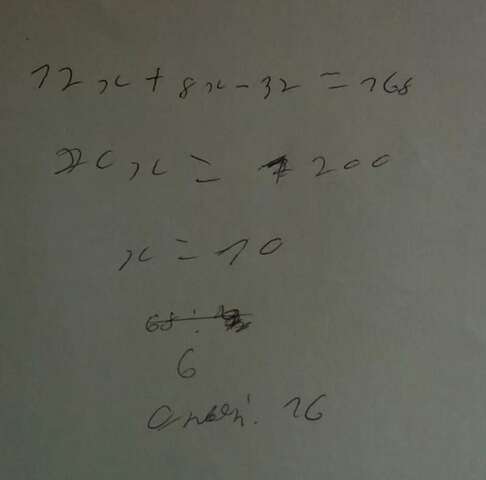 12x + 8x - 32 = 168
20x = 200
x = 10
68:
6
ответ: 16